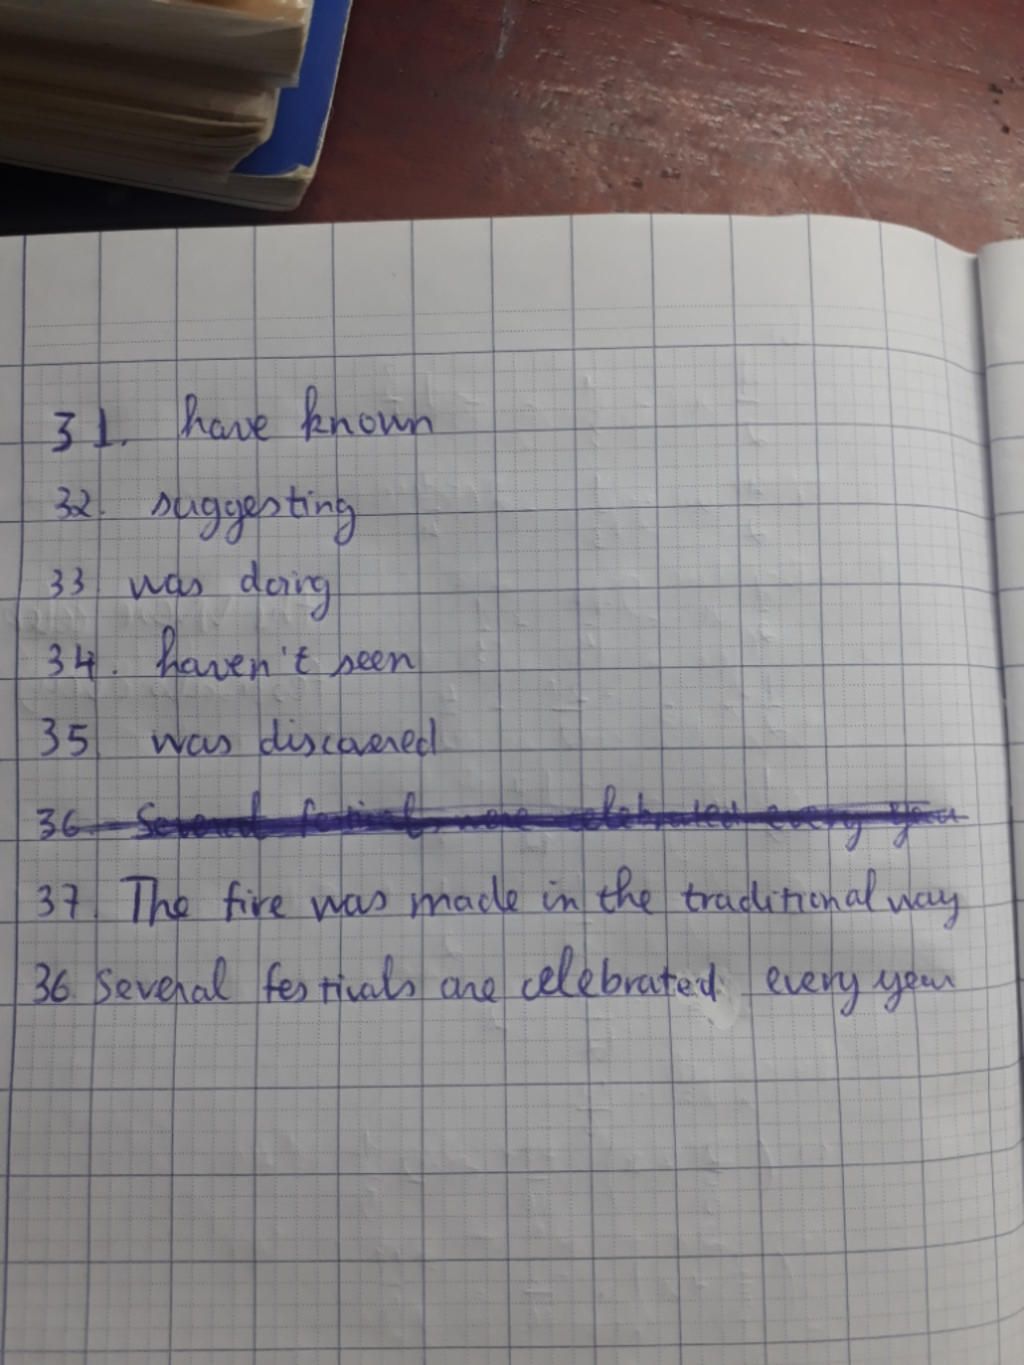 31. have known
32. suggesting
33 was doing
34. haven't seen
35 was discovered
36. Several festivals were celebrated every year
37. The fire was made in the traditional way
36. Several festivals are celebrated every year